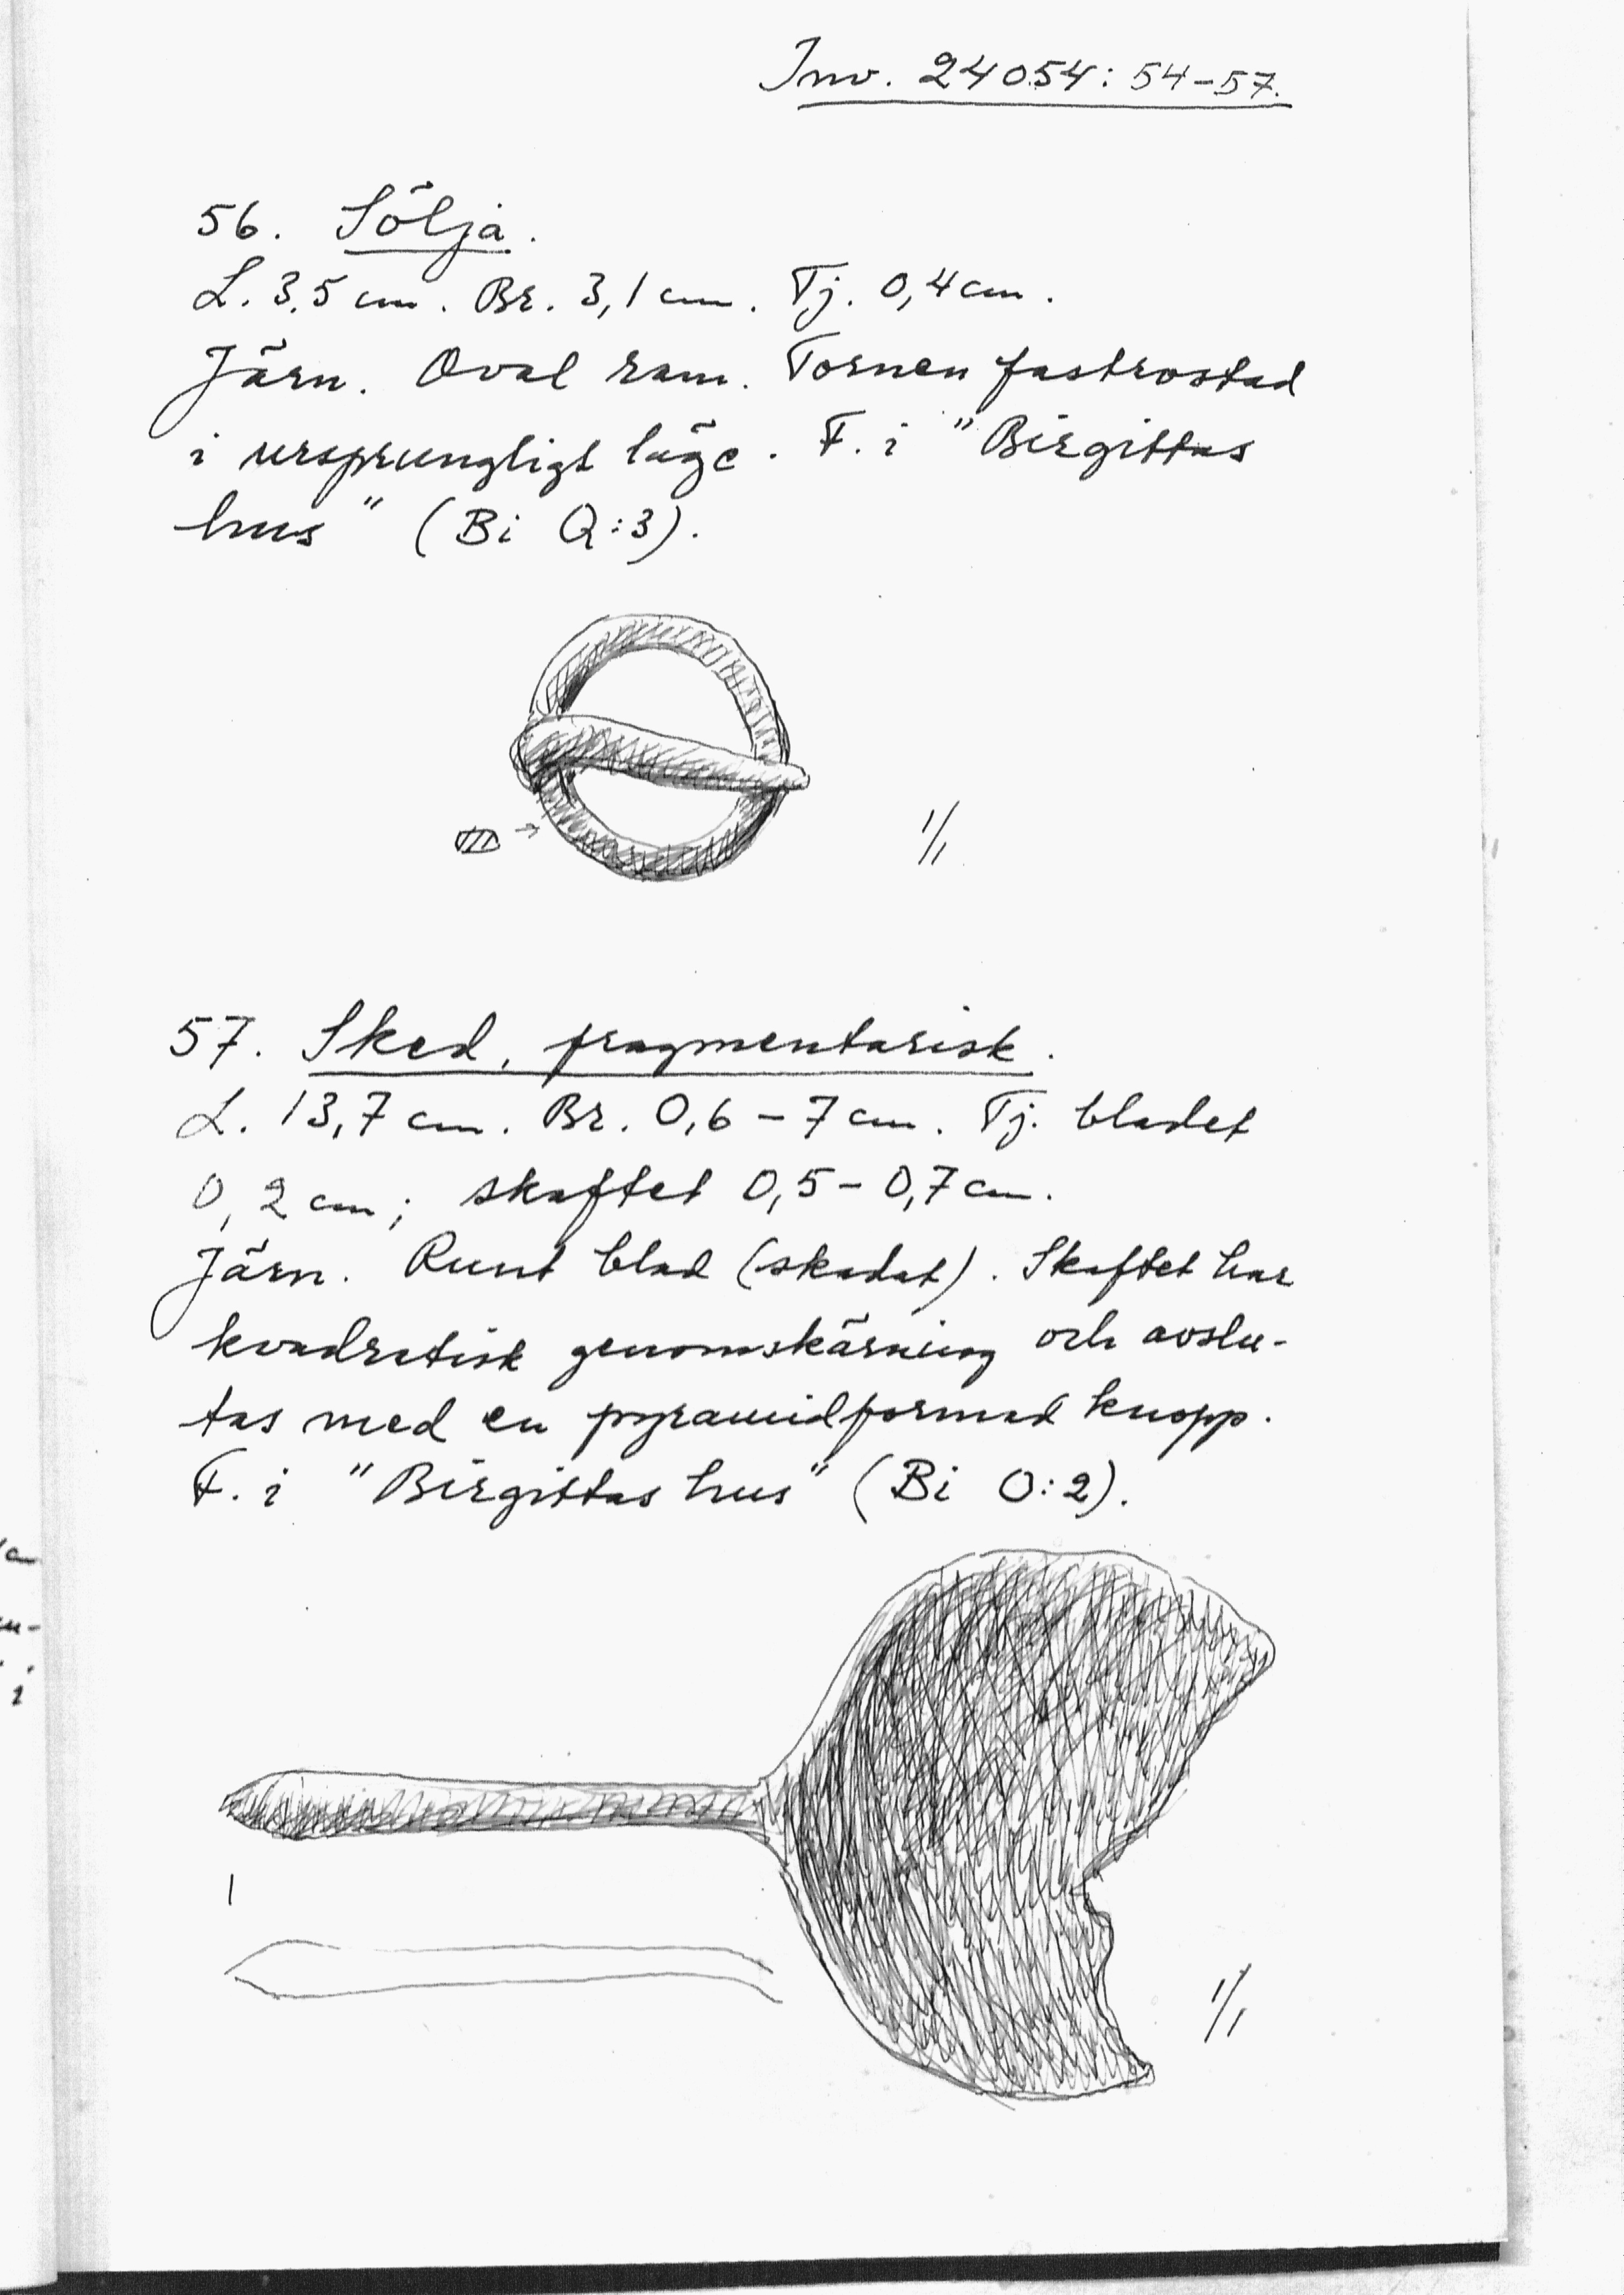 Inv. 24054: 54-57.
56. Sölja.
L. 3,5 cm. Br. 3,1 cm. Tj. 0,4 cm.
Järn. Oval ram. Tornen fastrostad
i ursprungligt läge. F. i "Birgittas
hus" (Bi Q:3).
1/1
57. Sked, fragmentarisk.
L. 13,7 cm. Br. 0,6 - 7 cm. Tj. bladet
0,2 cm; skaftet 0,5 - 0,7 cm.
Järn. Runt blad (skadat). Skaftet har
kvadratisk genomskärning och avslu-
tas med en pyramidformad knopp.
F. i "Birgittas hus" (Bi O:2).
1/1